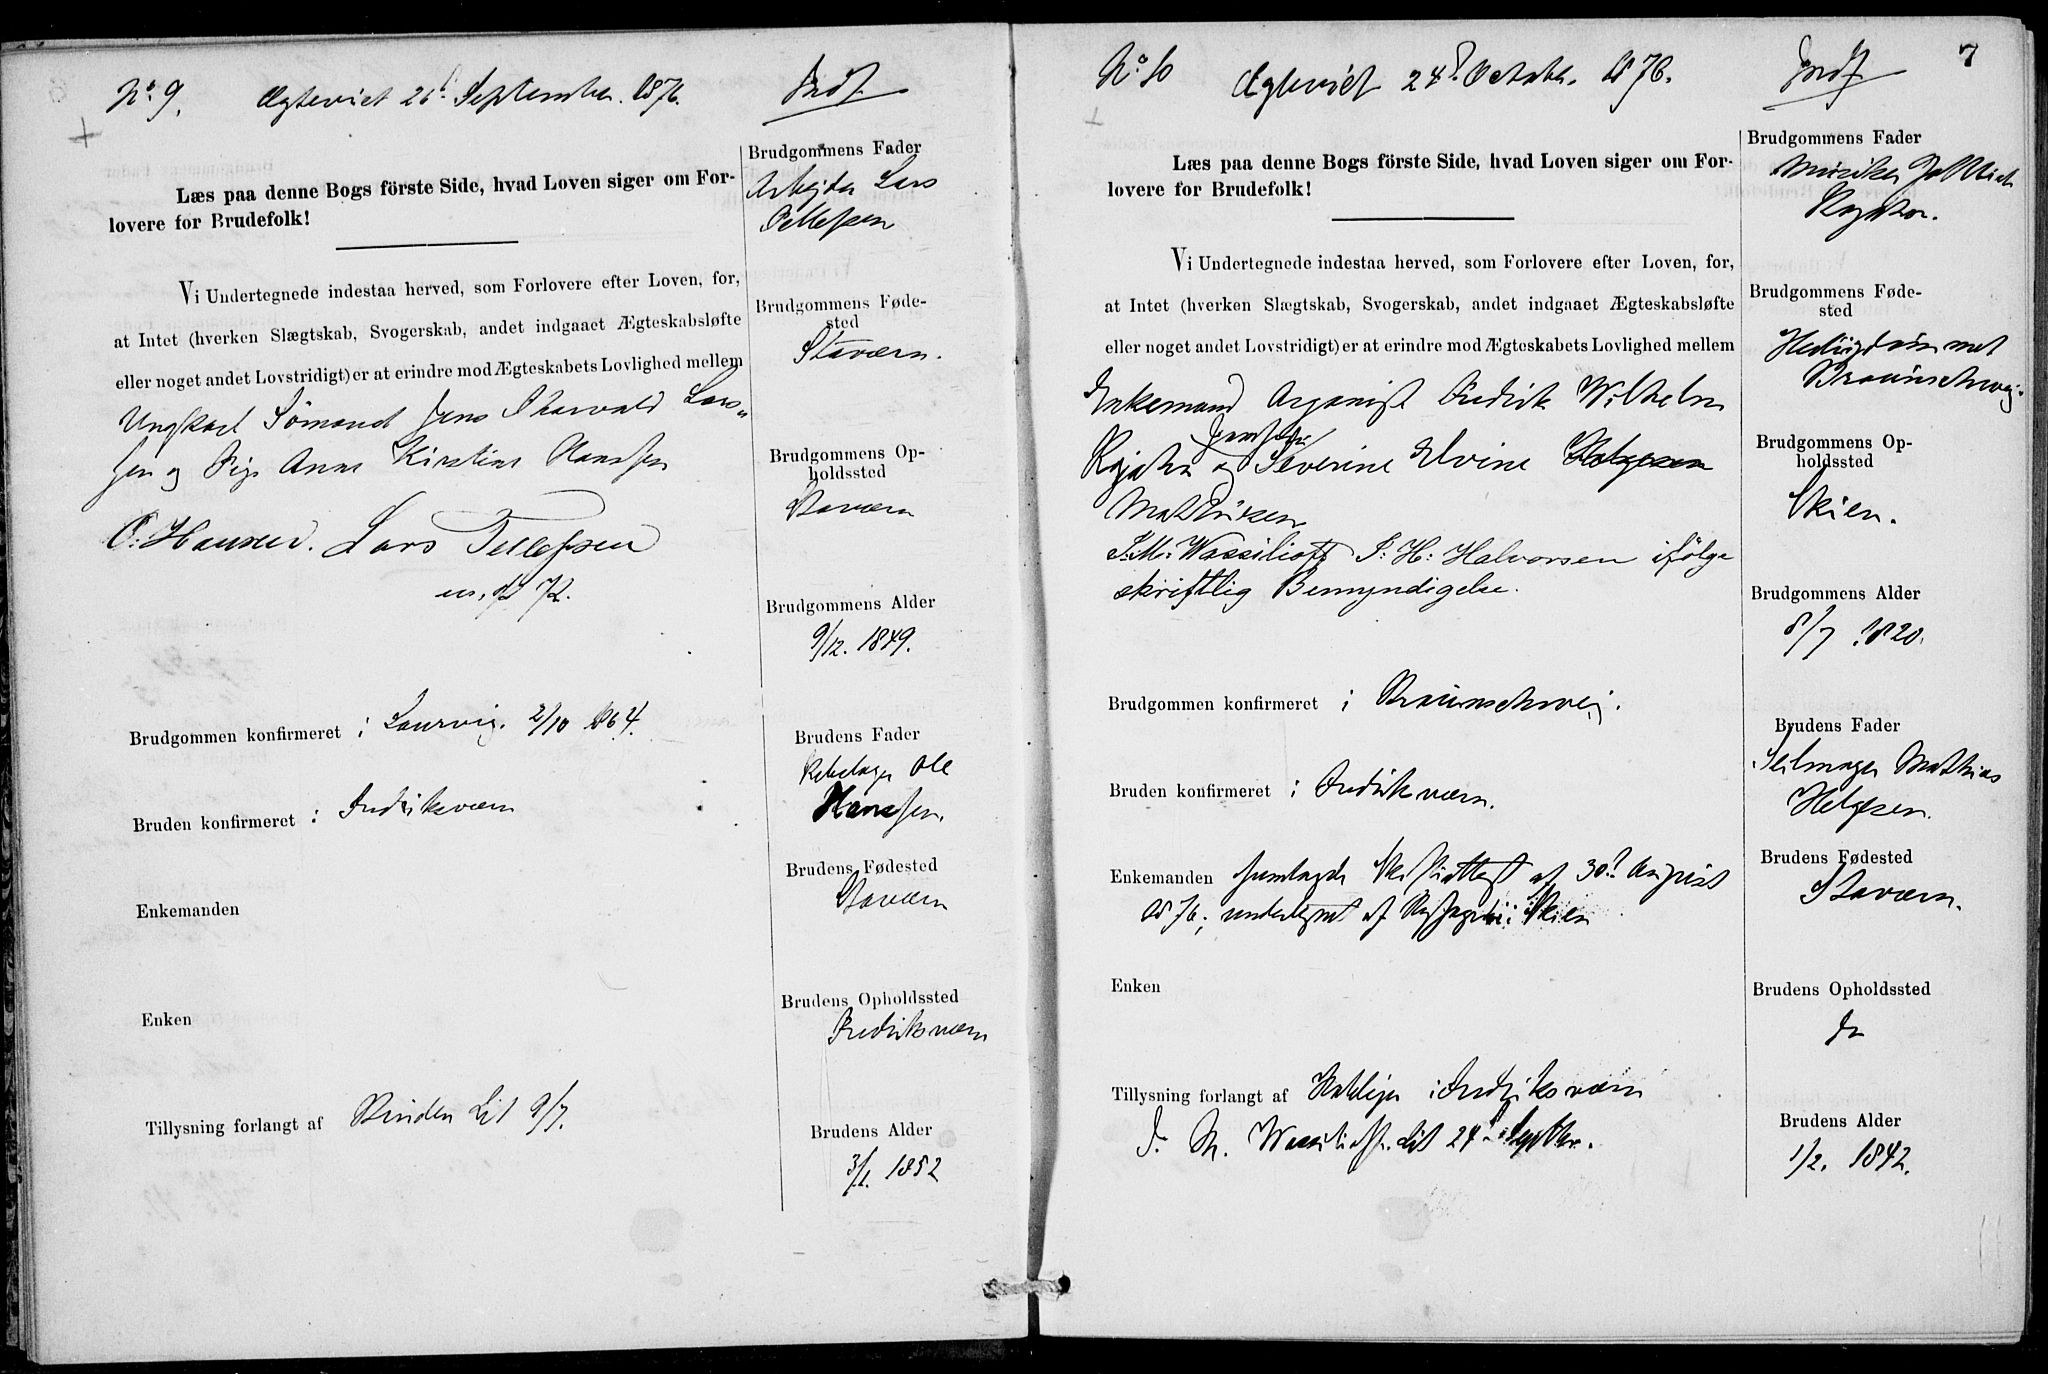 No 9. Ægteviet 26d September 1876. Indf.
Læs paa denne Bogs förste Side, hvad Loven siger om For-
lovere for Brudefolk!
Vi Undertegnede indestaa herved, som Forlovere efter Loven, for,
at Intet (hverken Slægtskab, Svogerskab, andet indgaaet Ægteskabsløfte
eller noget andet Lovstridigt) er at erindre mod Ægteskabets Lovlighed mellem
Ungkarl Sömand Jens Tharvald Lars„
sen og Pige Anne Kirstine Hanssen
O: Hansen. Lars Tellefsen
m. f. P.
Brudgommen konfirmeret i Laurvig. 2/10 1864.
Bruden konfirmeret i Fredriksværn
Enkemanden
Enken
Tillysning forlangt af Bruden Lit 9/7.
Brudgommens Fader
Arbejder Lars
Tellefsen
Brudgommens Føde-
sted
Staværn.
Brudgommens Op-
holdssted
Staværn
Brudgommens Alder
9/12. 1849.
Brudens Fader
Rebslager Ole
Hanssen.
Brudens Fødested
Staværn
Brudens Opholdssted
Fredriksværn
Brudens Alder
3/1. 1852
No 10 Ægteviet 24d Octobr. 1876. Indf 7
Læs paa denne Bogs förste Side, hvad Loven siger om For-
lovere for Brudefolk!
Vi Undertegnede indestaa herved, som Forlovere efter Loven, for,
at Intet (hverken Slægtskab, Svogerskab, andet indgaaet Ægteskabsløfte
eller noget andet Lovstridigt) er at erindre mod Ægteskabets Lovlighed mellem
Enkemand Organist Fredrik Wilhelm
Jomfru
og Severine Elvine Helgesen
Mathisen
I. M. Wassilioff I: H: Halvorsen ifölge
skriftlig Bemyndigelse.
Brudgommen konfirmeret i Braunschweig.
Bruden konfirmeret i Fredriksværn.
Enkemanden fremlagde Skifteattest af 30d August
1876, undertegnet af i Skien
Enken
Tillysning forlangt af i Fredriksværn
I. M. Wassilioff. Lit 24d Septbr.
Brudgommens Fader
Musiker
Brudgommens Føde-
sted
Hertugdømmet
Braunschweig.
Brudgommens Op-
holdssted
Skien.
Brudgommens Alder
8/7 1820.
Brudens Fader
Seilmager Mathias
Helgesen.
Brudens Fødested
Staværn.
Brudens Opholdssted
do
Brudens Alder
1/2. 1842.